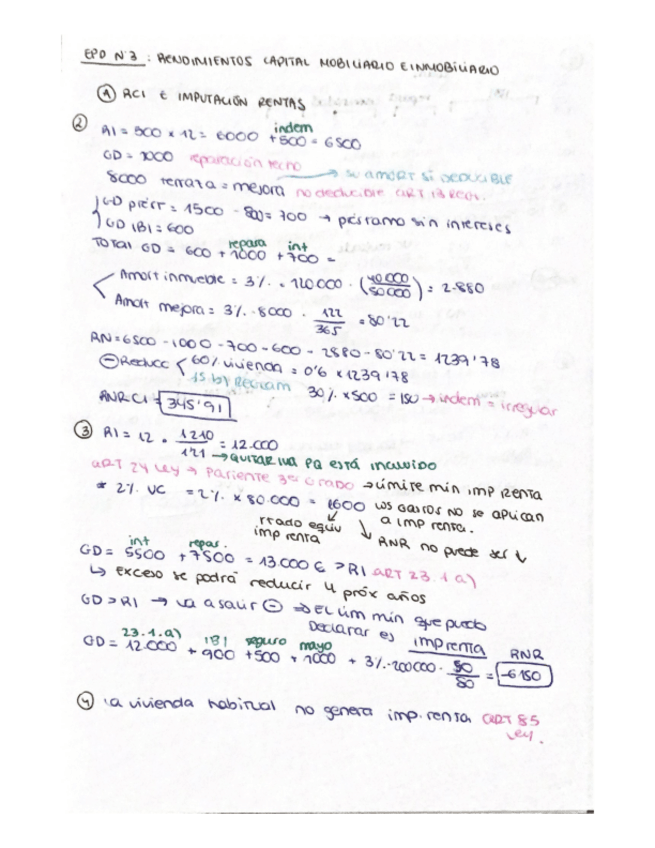 EPD Nº3 : RENDIMIENTOS CAPITAL MOBILIARIO E INMOBILIARIO
① RCI E IMPUTACIÓN RENTAS
② RI = 500 x 12 = 6000 + 500 = 6500
indem
GD = 1000 reparación techo
→ su AMORT SI DEDUCIBLE
8000 terraza = mejora no deducible ART 13 REGL.
GD prést = 1500 - 800 = 700 → préstamo sin intereses
GD IBI = 600
TOTAL GD = 600 + 1000 + 700 =
repara int
Amort inmueble = 3% · 120000 · (40000/50000) = 2.880
Amort mejora = 3% · 8000 · 122/365 = 80'22
RN = 6500 - 1000 - 700 - 600 - 2880 - 80'22 = 1239'78
⊖ Reducc 60% vivienda = 0'6 x 1239'78
15 b) Reglam 30% x 500 = 150 → indem = irregular
RNRCI = 345'91
③ RI = 12 · 1210/121 = 12.000
→ QUITAR IVA PQ ESTÁ INCLUIDO
ART 24 Ley → Pariente 3er Grado → Límite mín imp RENTA
* 2% VC = 2% x 80.000 = 1600 LOS GASTOS NO SE APLICAN
a imp renta.
rtado equiv
imp renta
↓ RNR no puede ser ↓
int repar.
GD = 5500 + 7500 = 13.000 € > RI ART 23.1 a)
↳ EXCESO se podrá reducir 4 próx años
GD > RI → va a salir ⊖ ⇒ El lím mín que puedo
Declarar es imp renta
23.1.a) IBI seguro mayo RNR
GD = 12.000 + 900 + 500 + 1000 + 3% · 200000 · 50/80 = -6150
④ La vivienda habitual no genera imp. renta ART 85
Ley.